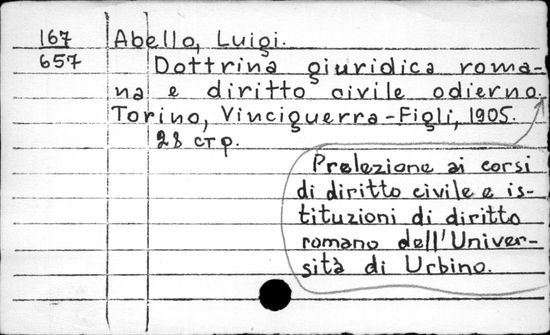 167 Abello, Luigi.
657 Dottrina giuridica roma-
na e diritto civile odierno.
Torino, Vinciguerra-Figli, 1905.
28 стр.
Prolezione ai corsi
di diritto civile e is-
tituzioni di diritto
romano dell'Univer-
sità di Urbino.